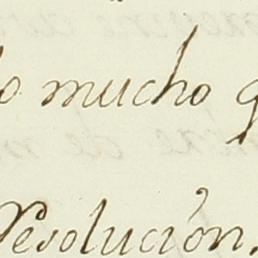 lo mucho q
Resolución.